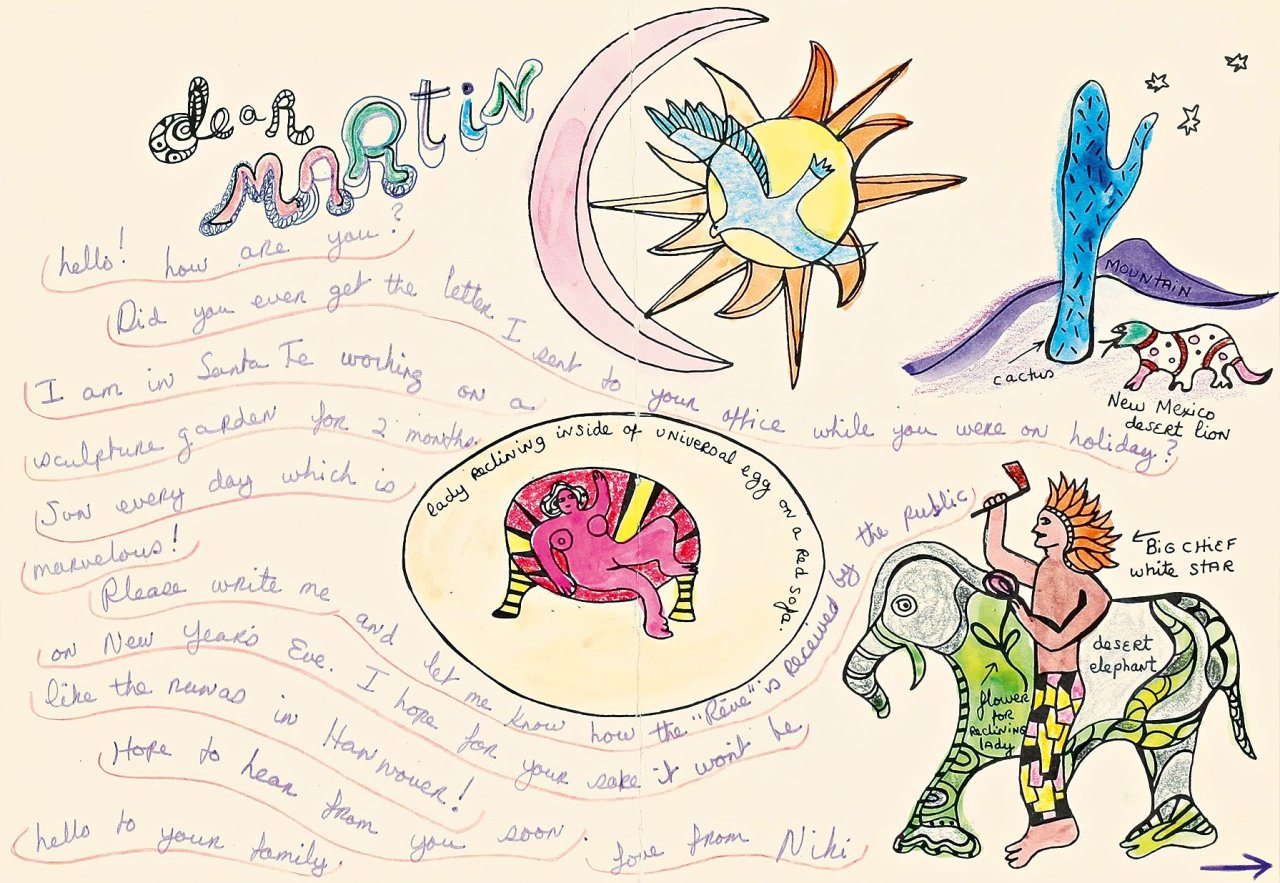 dear
MARtiN
hello! how are you?
Did you ever get the letter I sent to your office while you were on holiday?
I am in Santa Fe working on a
sculpture garden for 2 months.
Sun every day which is
marvelous!
Please write me and let me know how the "Rêve" is received by the public
on New Year's Eve. I hope for your sake it won't be
like the nanas in Hannover!
Hope to hear from you soon.
hello to your family.
Love from Niki
lady reclining inside of universal egg on a red sofa.
MOUNTAIN
cactus
New Mexico
desert lion
BiG CHiEF
white STAR
desert
elephant
flower
for
Reclining
lady